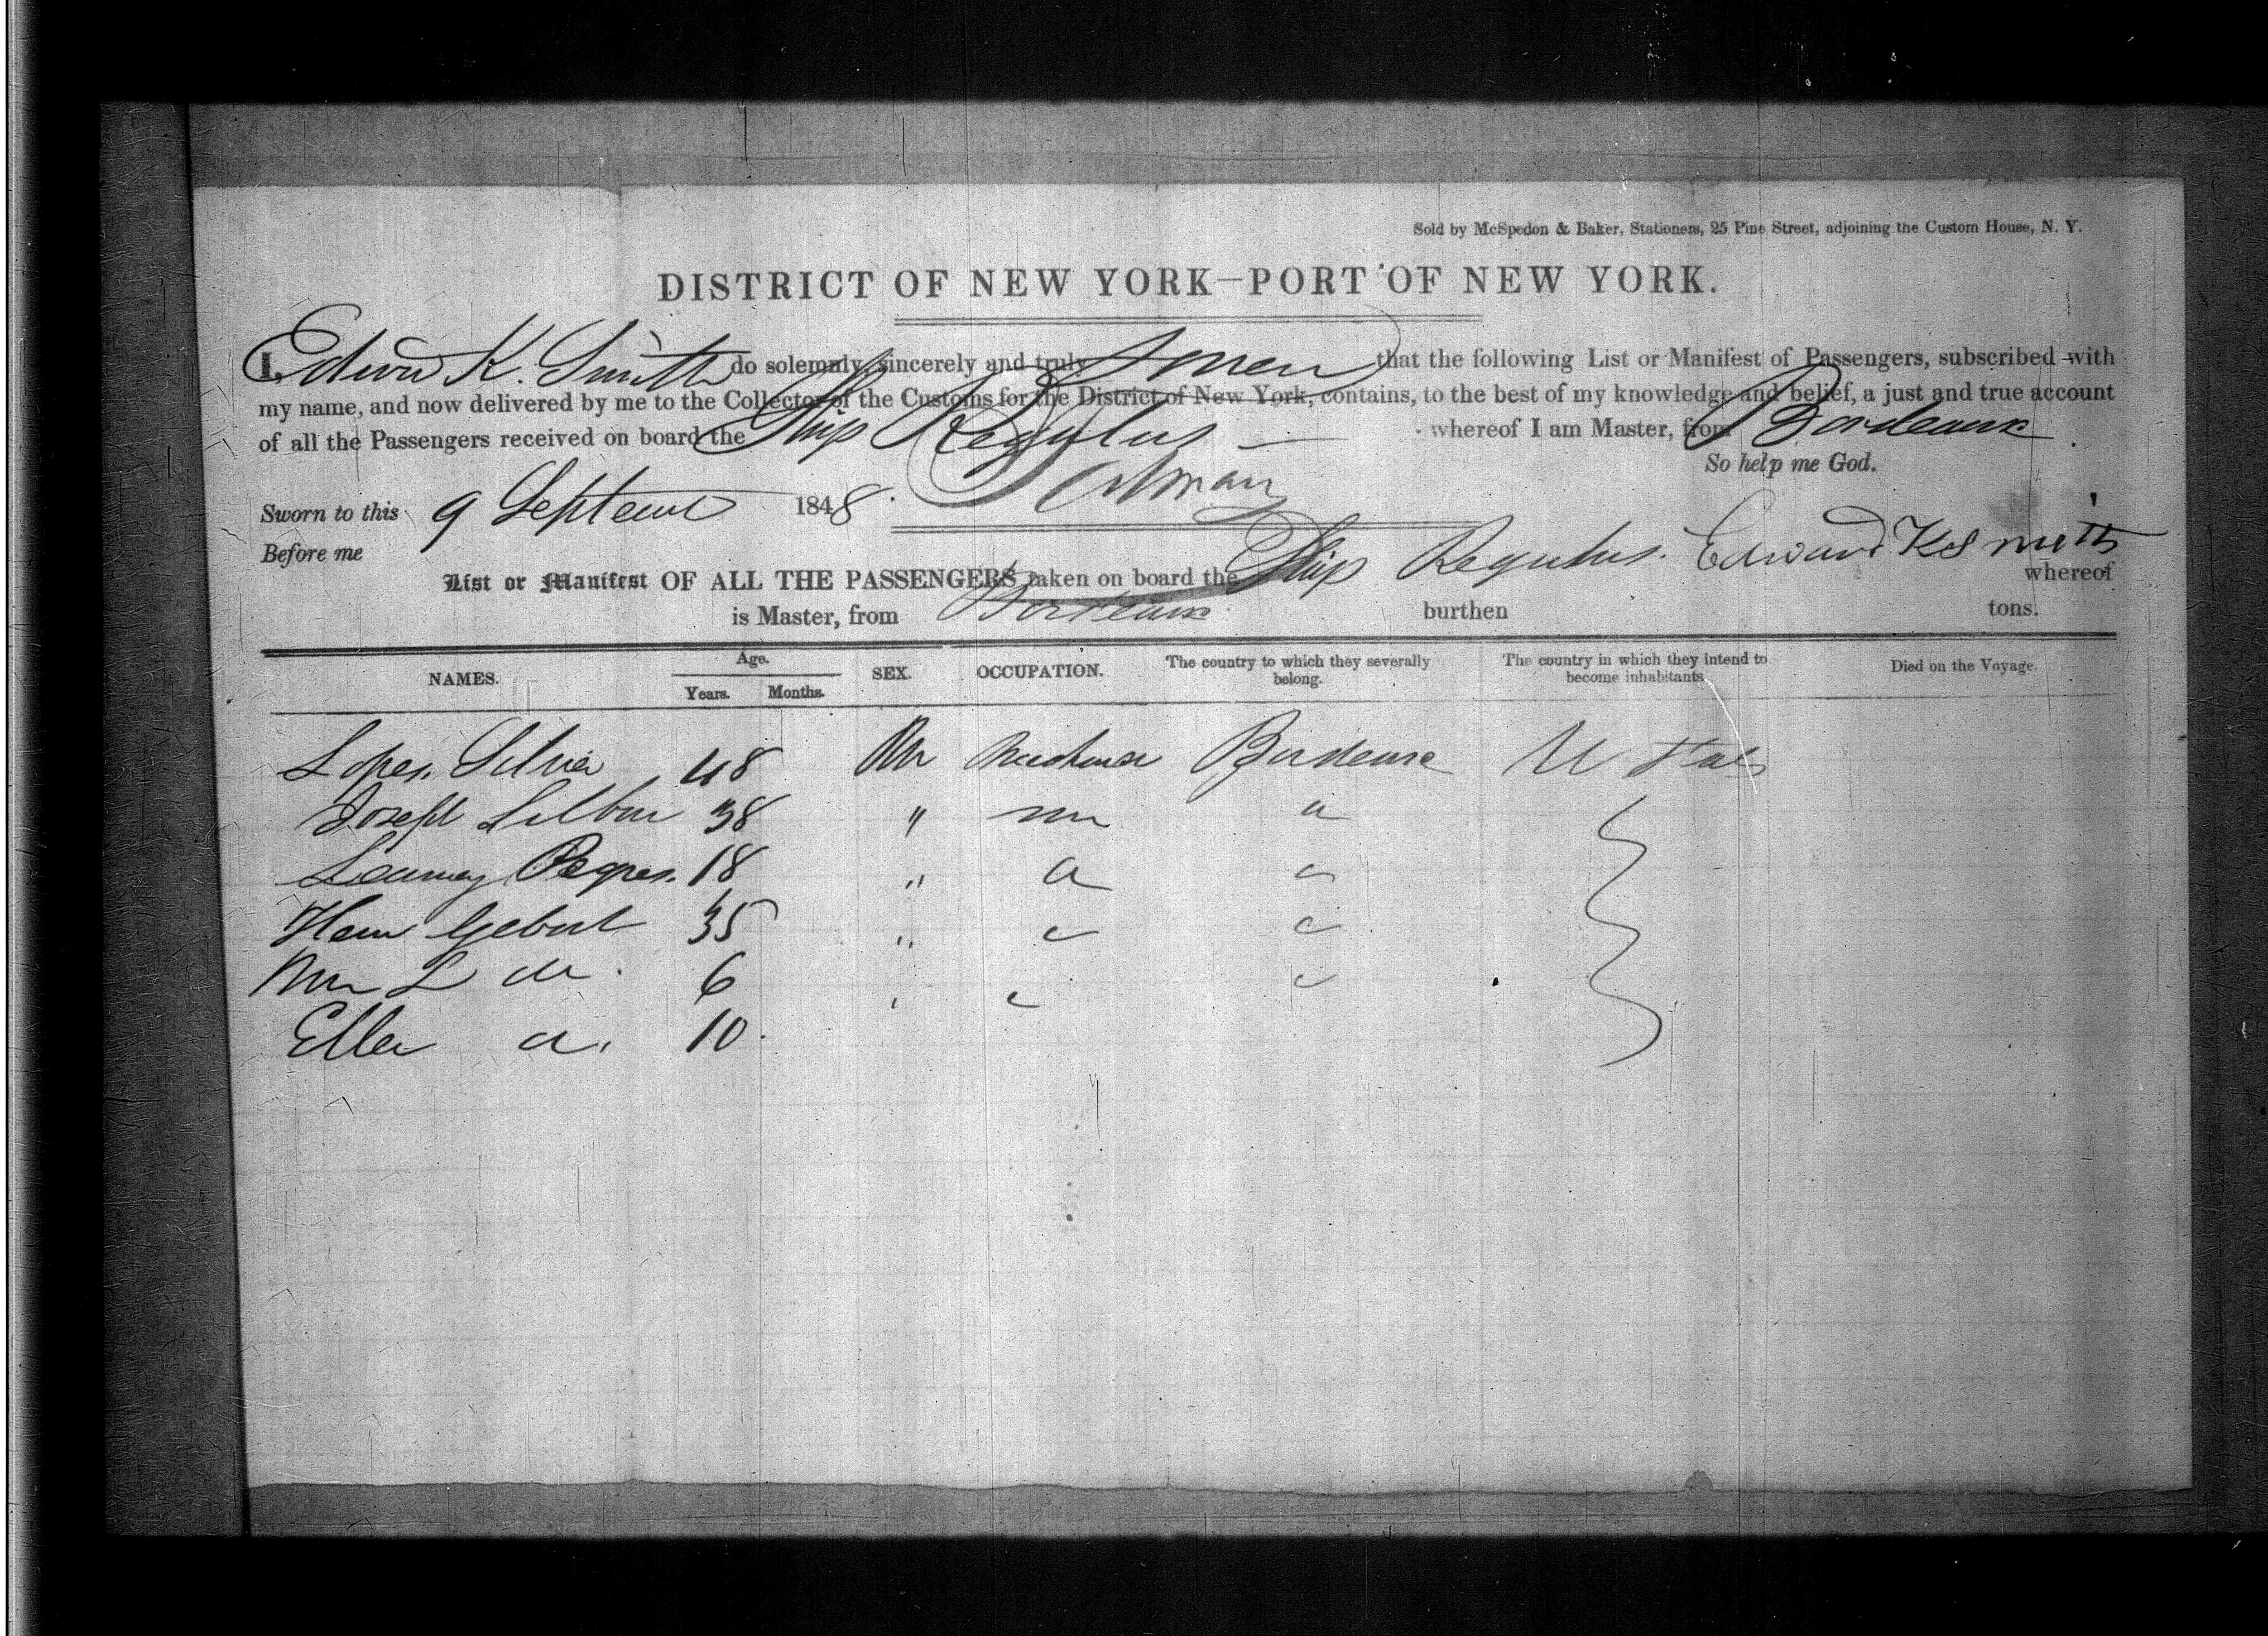 Sold by McSpedon & Baker, Stationers, 25 Pine Street, adjoining the Custom House, N. Y.
DISTRICT OF NEW YORK—PORT OF NEW YORK.
I, Edwin K. Smith do solemnly, sincerely and truly swear that the following List or Manifest of Passengers, subscribed with
my name, and now delivered by me to the Collector of the Customs for the District of New York, contains, to the best of my knowledge and belief, a just and true account
of all the Passengers received on board the Ship Regulus whereof I am Master, from Bordeaux
So help me God.
Sworn to this 9 September 1848.
Before me
List or Manifest OF ALL THE PASSENGERS taken on board the Ship Regulus. Edward K Smith whereof
is Master, from Bordeaux burthen tons.
NAMES. Age. Years. Months. SEX. OCCUPATION. The country to which they severally belong. The country in which they intend to become inhabitants Died on the Voyage.
Lopes Silvia 48 M Bordeaux U Stats
Joseph 38 "
18 "
Gebert 35 "
6
Ella 10.